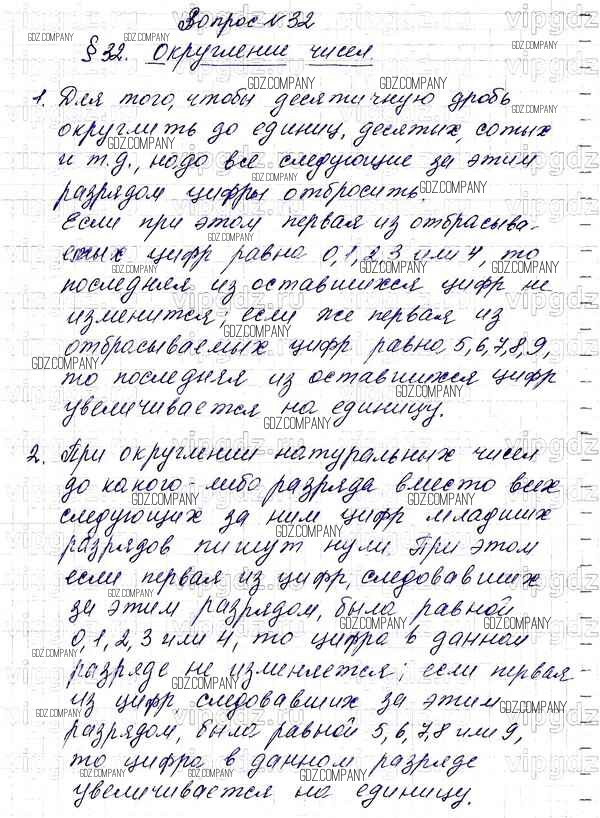 Вопрос № 32
§ 32. Округление чисел.
1. Для того, чтобы десятичную дробь
округлить до единиц, десятых, сотых
и т.д., надо все следующие за этим
разрядом цифры отбросить.
Если при этом первая из отбрасыва-
емых цифр равна 0, 1, 2, 3 или 4, то
последняя из оставшихся цифр не
изменится; если же первая из
отбрасываемых цифр равна, 5, 6, 7, 8, 9,
то последняя из оставшихся цифр
увеличивается на единицу.
2. При округлении натуральных чисел
до какого-либо разряда вместо всех
следующих за ним цифр младших
разрядов пишут нули. При этом
если первая из цифр, следовавших
за этим разрядом, была равной
0, 1, 2, 3 или 4, то цифра в данном
разряде не изменяется; если первая
из цифр следовавших за этим
разрядом, была равной 5, 6, 7, 8 или 9,
то цифра в данном разряде
увеличивается на единицу.
GDZ.COMPANY
vipgdz.ru